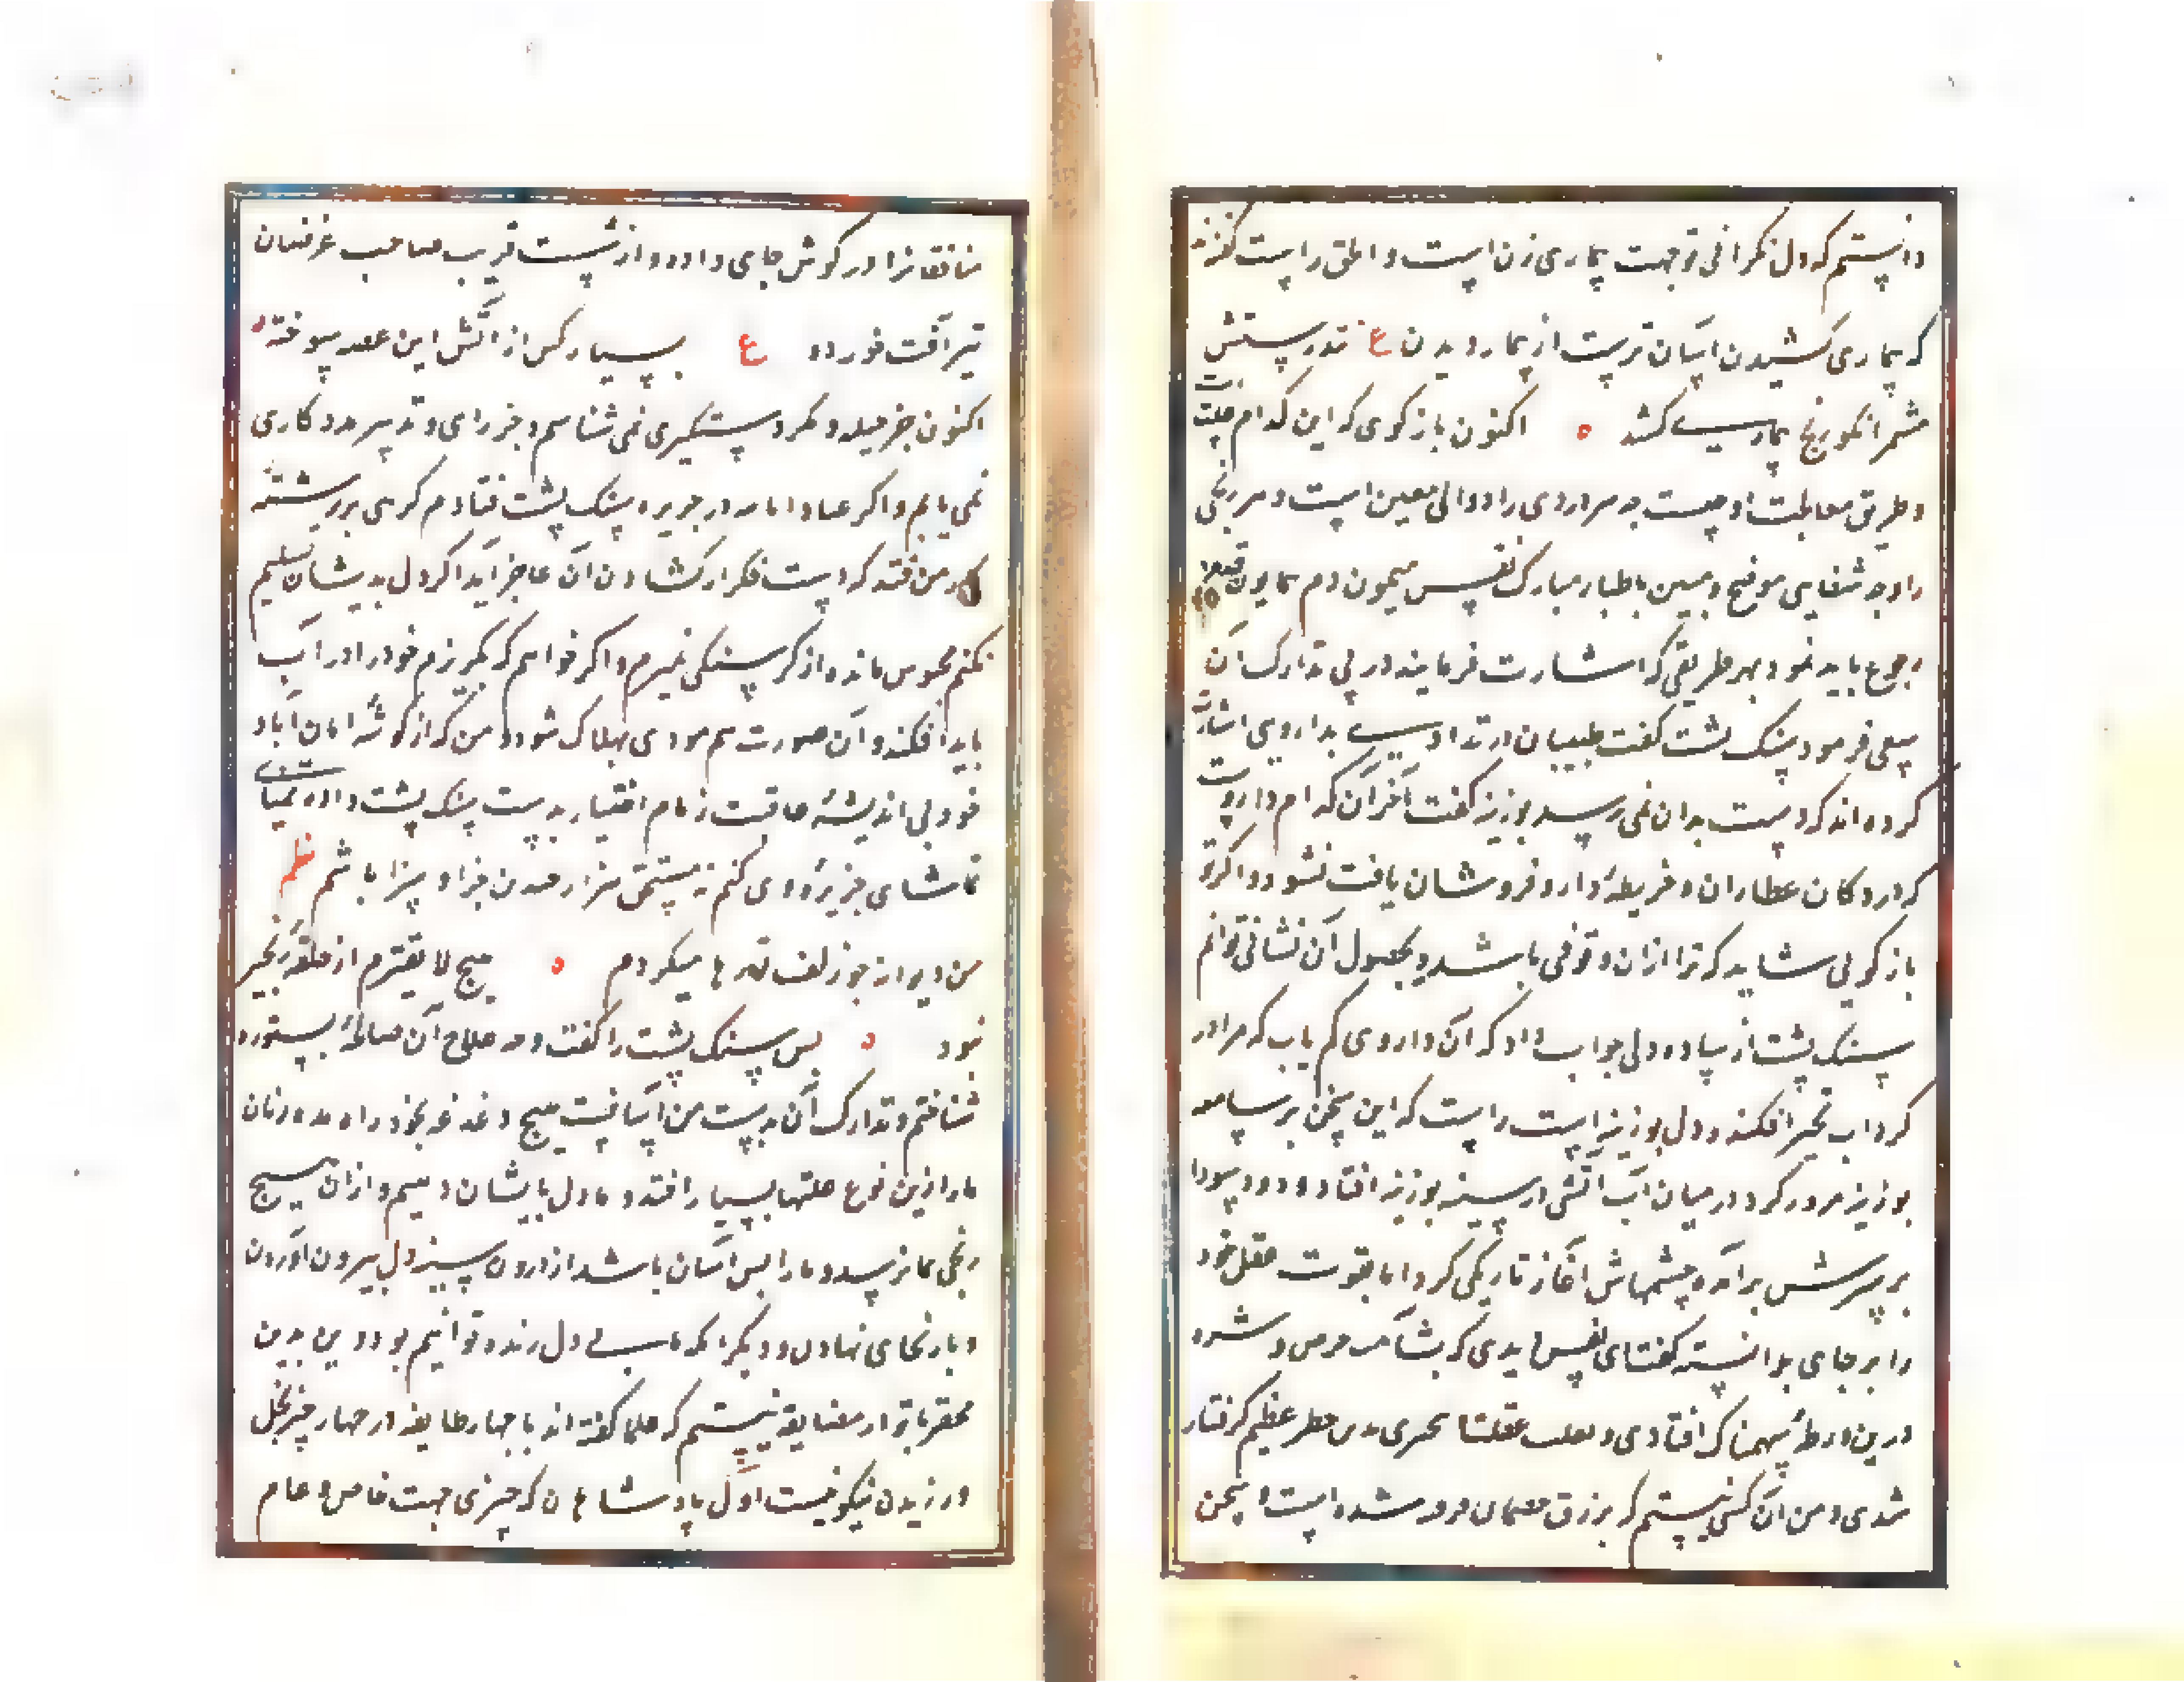 دانستم که دل نکرانی تو جهت بیماری زن است و الحق راست کفته‌اند
که بیماری کشیدن آسان ترست از بیمار دیدن ع تندرستش
مشمر انکو رنج بیماری کشد ه اکنون باز کوی که این کدام علتست
و طریق معالجت او چیست چه هر دردی را دوائی معین است و هر رنجی
را وجه شفایی موضح و مبین باطبار مبارک نفس میمون دم همایون قدم
رجوع باید نمود و بهر طریقی که اشارت فرمایند در پی تدارک آن
سعی فرمود سنک پشت کفت طبیبان در تداوی بدارویی اشارت
کرده‌اند که دست بدان نمی‌رسد بوزینه کفت آخر آن کدام داروست
که در دکان عطاران و خریطهٔ دارو فروشان یافت نشود و اکر تو
باز کویی شاید که ترا ازان وقوفی باشد و بحصول آن نشانی توانم
سنک پشت از ساده دلی جواب داد که آن داروی کم یاب که مرا در
کرداب تحیر افکنده دل بوزینه است راست که این سخن بر سامعه
بوزینه مرور کرد در میان آب آتش در سینه بوزینه افتاد و دود سودا
بر سرش برآمد و چشمهاش آغاز تاریکی کرد اما بقوت عقل خود
را بر جای بداشته کفت ای نفس دیدی که بشآمت حرص و شره
درین ورطهٔ سهمناک افتادی و خطر عظیم کرفتار
شدی و من آن کس نیستم که بزرق شده است سخن
منافقانرا در کوش جای داده و از شست فریب صاحب غرضان
تیر آفت خورده ع بسیار کس از آتش این عهد سوخته
اکنون جز حیله و مکر دستکیری نمی‌شناسم و جز رای و تدبیر مددکاری
نمی‌یابم و اکر عیاذا بالله در جزیره سنک پشت فتادم کرهی بر رشتهٔ
کار من فتد که دست فکر از کشادن آن عاجز آید اکر دل بدیشان تسلیم
نکنم محبوس مانده از کرسنکی بمیرم و اکر خواهم که بکریزم خود را در آب
باید افکند و آن صورت هم مودی بهلاک شود و من که از کوشهٔ امان آباد
خود بی اندیشهٔ عاقبت زمام اختیار بدست سنک پشت داده تمنای
تماشای جزیرهٔ وی کنم نه مستحق هزار چندین جزا و سزا باشم نظم
من دیوانه چو زلف تو رها میکردم ه هیچ لایقترم از حلقهٔ زنجیر
نبود ه پس سنک پشت را کفت وجه علاج آن صالحهٔ مستوره
شناختم و تدارک آن بدست من آسانیست هیچ دغدغه بخود راه مده و زنان
ما را ازین نوع علتها بسیار افتد و ما دل بایشان دهیم و ازان هیچ
رنجی بما نرسد و ما را بس آسان باشد از درون سینه دل بیرون آوردن
و باز بجای نهادن و دیکر آنکه ما بی دل زنده توانیم بود و من بدین
محقر با تو در مضایقه نیستم که علما کفته‌اند با چهار طایفه در چهار چیز بخل
ورزیدن نیکو نیست اوّل پادشاهان که چیزی جهت خاص و عام